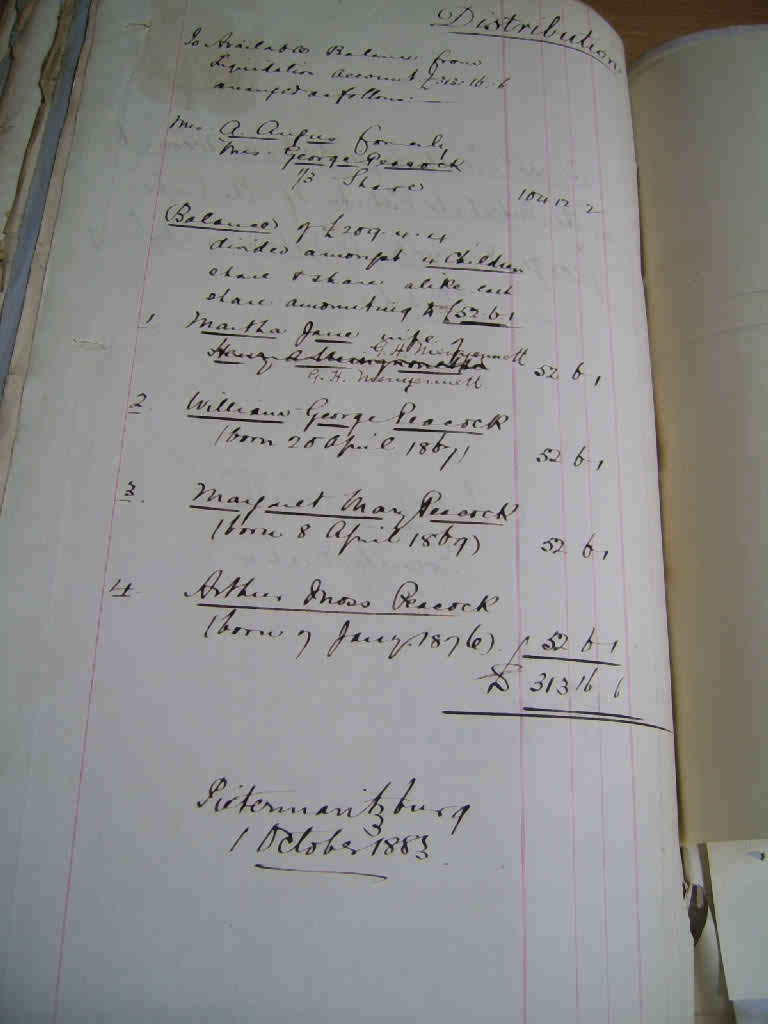 Distribution
To Available Balance from
Liquidation Account £313 16 6
arranged as follows:—
Mrs. A. Angus formerly
Mrs. George Peacock
1/3 Share 104 12 2
Balance of £209. 4. 4
divided amongst 4 Children
share & share alike each
share amounting to £52 6 1
1 Martha Jane wife of
G. H. Merryennett
G. H. Merryennett 52 6 1
2 William George Peacock
(born 20 April 1867) 52 6 1
3. Margaret Mary Peacock
(born 8 April 1869) 52 6 1
4 Arthur Moss Peacock
(born 7 Jany. 1876). 52 6 1
£ 313 16 6
Pietermaritzburg
1 October 1883